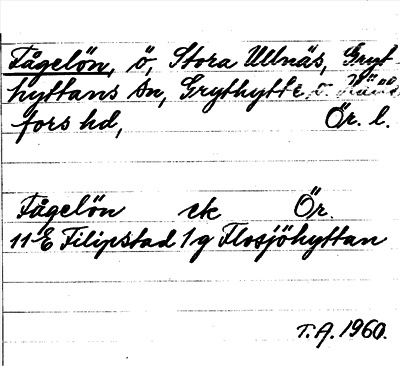 Fågelön, ö, Stora Ullnäs, Gryt-
hyttans sn, Grythytte o. Hälle
fors hd, Ör. l.
Fågelön ek Ör.
11 E Filipstad 1 g Flosjöhyttan
T.A. 1960.